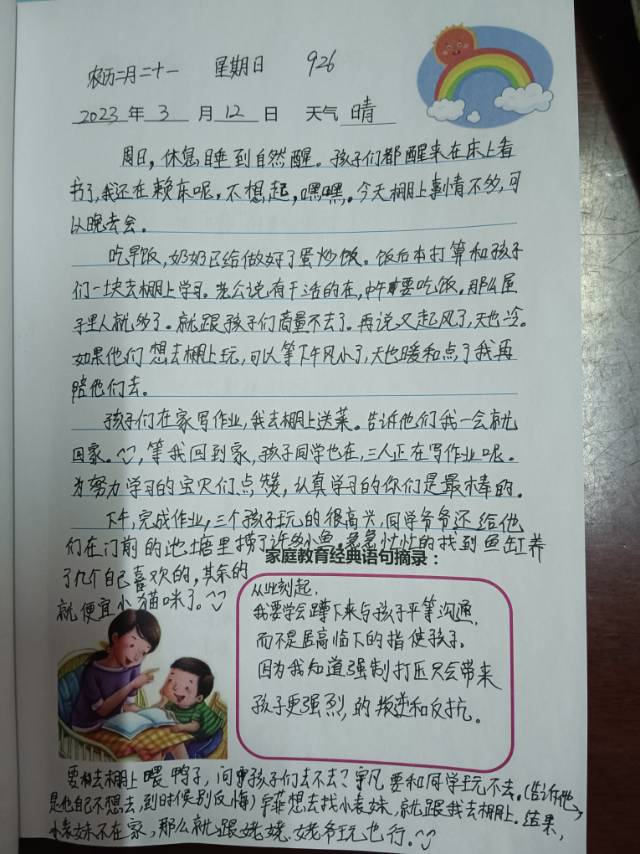 农历二月二十一 星期日 926
2023 年 3 月 12 日 天气 晴
周日，休息睡到自然醒。孩子们都醒来在床上看
书了，我还在赖床呢，不想起，嘿嘿。今天棚上事情不多，可
以晚去会。
吃早饭，奶奶已给做好了蛋炒饭。饭后本打算和孩子
们一块去棚上学习。老公说有干活的在，中午要吃饭，那么屋
子里人就多了。就跟孩子们商量不去了。再说又起风了，天也冷。
如果他们想去棚上玩，可以等下午风小了，天也暖和点了我再
陪他们去。
孩子们在家写作业，我去棚上送菜。告诉他们我一会就
回家。等我回到家，孩子同学也在，三人正在写作业呢。
为努力学习的宝贝们点赞，认真学习的你们是最棒的。
下午，完成作业，三个孩子玩的很高兴，同学爷爷还给他
们在门前的池塘里捞了许多小鱼。急急忙忙的找到鱼缸养
了几个自己喜欢的，其余的
就便宜小猫咪了。
家庭教育经典语句摘录：
从此刻起，
我要学会蹲下来与孩子平等沟通，
而不是居高临下的指使孩子。
因为我知道强制打压只会带来
孩子更强烈，的叛逆和反抗。
要去棚上喂鸭子，问孩子们去不去？宇凡要和同学玩不去。（告诉他，
是他自己不想去，到时候别反悔）宇菲想去找小表妹，就跟我去棚上。结果，
小表妹不在家，那么就跟姥姥、姥爷玩也行。